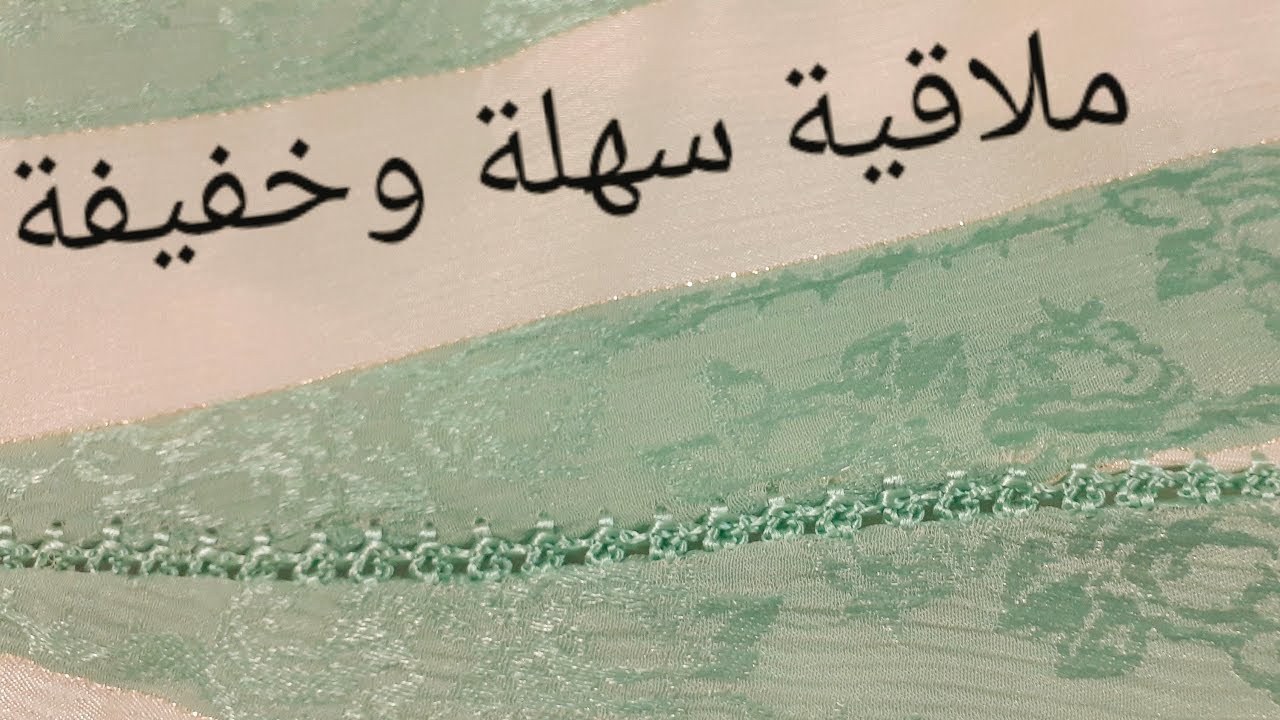 ملاقية سهلة وخفيفة